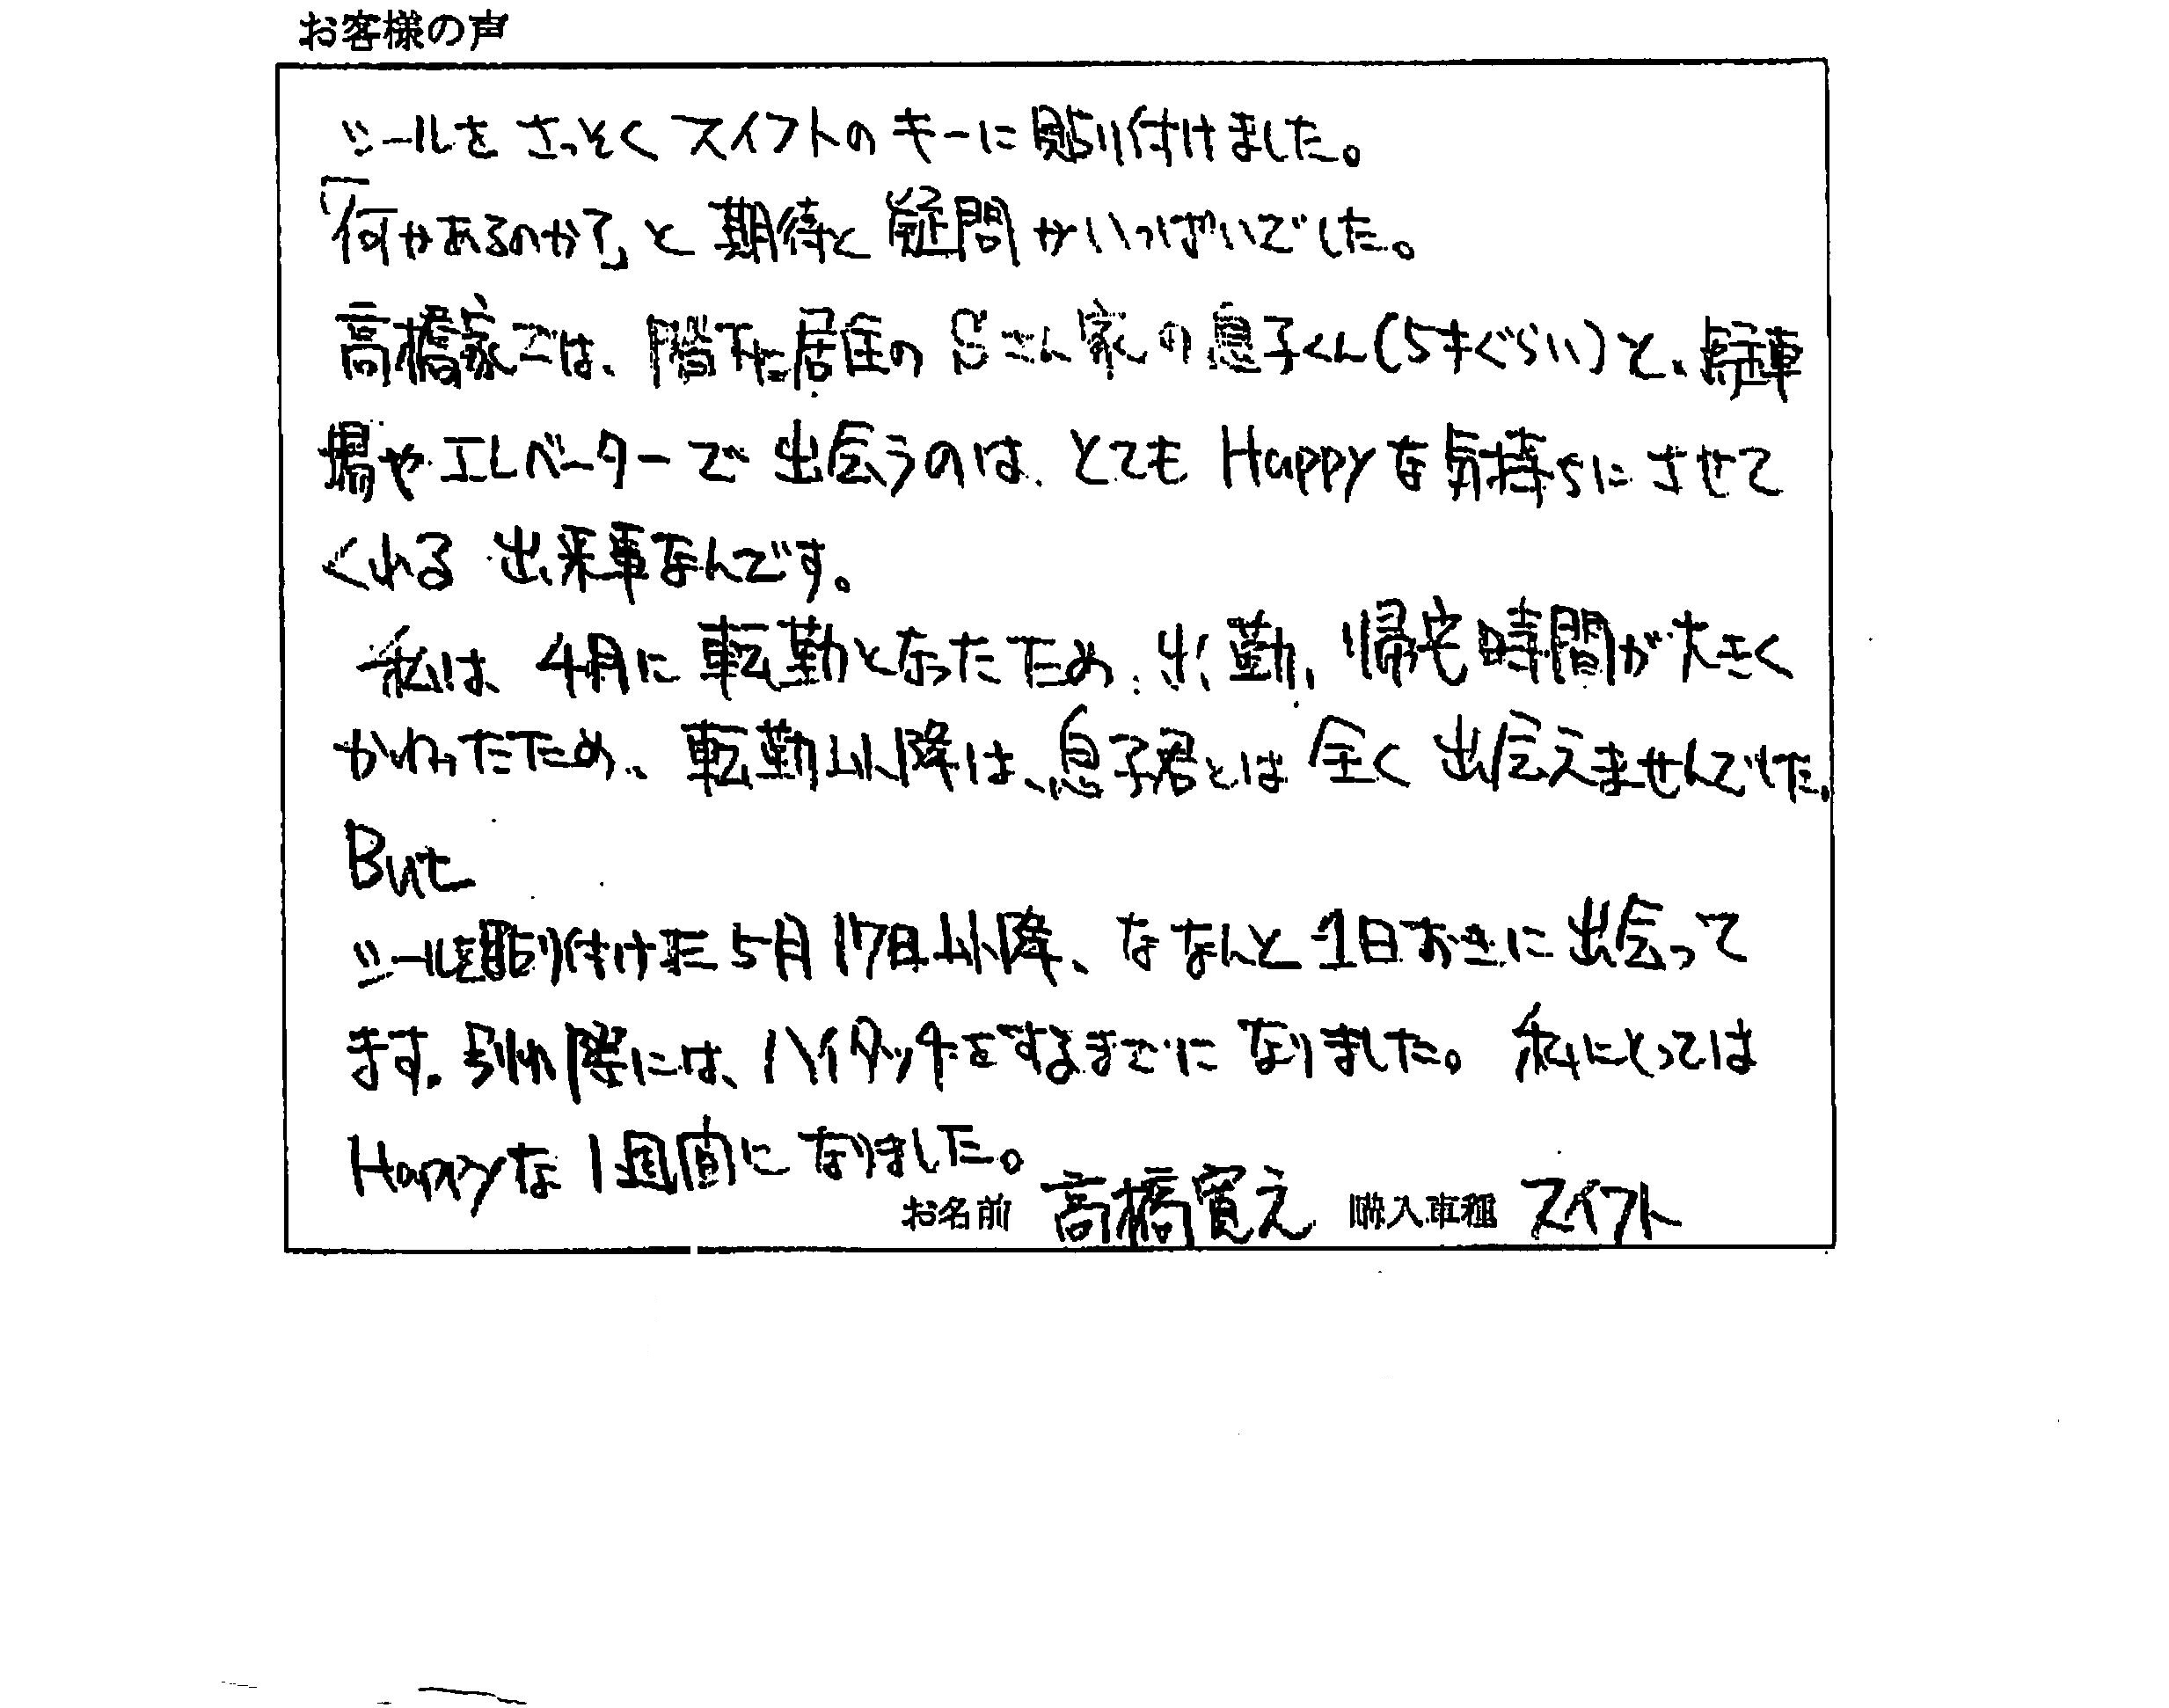 お客様の声
シールを さっそく スイフトの キーに 貼り付けました。
「何があるのか?」と 期待と 疑問がいっぱいでした。
高橋家では、階下に居住の Sさん家の息子くん(5才ぐらい)と、駐車
場や エレベーターで 出会うのは、とても Happyな気持ちに させて
くれる 出来事なんです。
私は、4月に 転勤となったため、出勤、帰宅時間が大きく
かわったため、転勤以降は、息子君とは 全く 出会えませんでした。
But
シールを貼り付けた 5月17日以降、ななんと 1日おきに 出会って
ます。別れ際には、ハイタッチをするまでに なりました。 私にとっては
Happyな 1週間に なりました。
お名前 高橋寛之 購入車種 スイフト